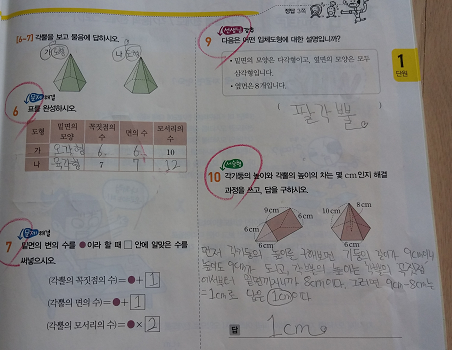 정답 3쪽
[6~7] 각뿔을 보고 물음에 답하시오.
가 나
6 해결
표를 완성하시오.
도형 밑면의 모양 꼭짓점의 수 면의 수 모서리의 수
가 오각형 6 6 10
나 육각형 7 7 12
7 해결
밑면의 변의 수를 ●이라 할 때 □ 안에 알맞은 수를
써넣으시오.
(각뿔의 꼭짓점의 수)=●+1
(각뿔의 면의 수)=●+1
(각뿔의 모서리의 수)=●×2
9
다음은 어떤 입체도형에 대한 설명입니까?
• 밑면의 모양은 다각형이고, 옆면의 모양은 모두
삼각형입니다.
• 옆면은 8개입니다.
( 팔각뿔 )
1
단원
10 서술형
각기둥의 높이와 각뿔의 높이의 차는 몇 cm인지 해결
과정을 쓰고, 답을 구하시오.
9cm 6cm 6cm
10cm 8cm 6cm
먼저 각기둥의 높이를 구해보면 기둥의 길이가 9cm이니
높이도 9cm가 되고, 각뿔의 높이는 각뿔의 꼭짓점
에서부터 밑면까지니까 8cm이다. 그러면 9cm-8cm는
=1cm로 답은 1cm이다
답 1cm